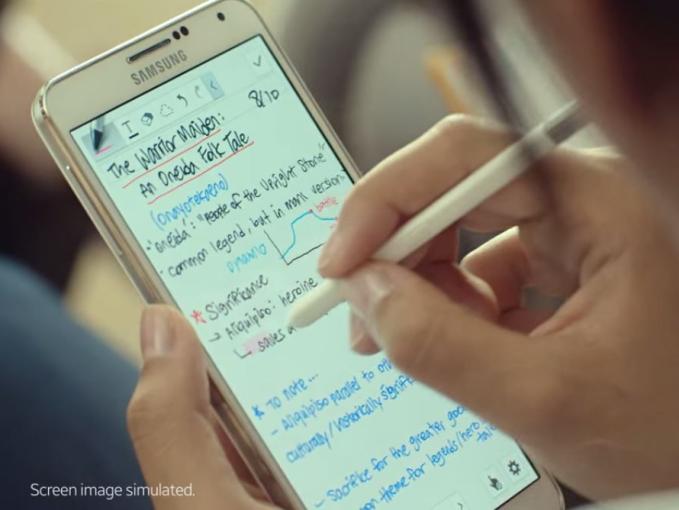 SAMSUNG
8/10
The Warrior Maiden:
An Oneida Folk Tale
(Onayotekaono)
"oneida": "People of the Upright Stone"
common legend, but in many version
battle
dynamic
* Significance
→ Aliquipiso: heroine
saves a
* To note...
- Aliquipiso parallel to oth
culturally/historically signifi
- Sacrifice for the greater good
on theme for legends/hero
tale
Screen image simulated.